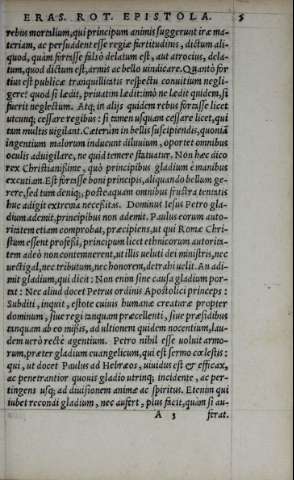 ERAS. ROT. EPISTOLA. 5
rebus mortalium, qui principum animis suggerunt iræ ma-
teriam, ac persuadent esse regiæ fortitudinis, dictum ali-
quod, quàm fortasse falsò delatum est, aut atrocius, dela-
tum, quod dictum est, armis ac bello uindicare. Quantò for
tius est publicæ tranquillitatis respectu conuitium negli-
gere? quod si lædit, priuatim lædit: imò ne lædit quidem, si
fuerit neglectum. Atq; in alijs quidem rebus fortasse licet
utcunq; cessare regibus: si tamen usquam cessare licet, qui
tam multis uigilant. Cæterum in bellis suscipiendis, quoniã
ingentium malorum inducunt diluuium, oportet omnibus
oculis aduigilare, ne quid temere statuatur. Non hæc dico
rex Christianissime, quò principibus gladium è manibus
excutiam. Est fortasse boni principis, aliquando bellum ge-
rere, sed tum deniq;, posteaquam omnibus frustra tentatis
huc adigit extrema necessitas. Dominus Iesus Petro gla-
dium ademit, principibus non ademit. Paulus eorum auto-
ritatem etiam comprobat, præcipiens, ut qui Romæ Chri-
stum essent professi, principum licet ethnicorum autorita-
tem adeò non contemnerent, ut illis ueluti dei ministris, nec
uectigal, nec tributum, nec honorem, detrahi uelit. An adi-
mit gladium, qui dicit: Non enim sine causa gladium por-
tat: Nec aliud docet Petrus ordinis Apostolici princeps:
Subditi, inquit, estote cuiuis humanæ creaturæ propter
dominum, siue regi tanquam præcellenti, siue præsidibus
tanquam ab eo missis, ad ultionem quidem nocentium, lau-
dem uerò rectè agentium. Petro nihil esse uoluit armo-
rum, præter gladium euangelicum, qui est sermo cœlestis:
qui, ut docet Paulus ad Hebræos, uiuidus est & efficax,
ac penetrantior quouis gladio utrinq; incidente, ac per-
tingens usq; ad diuisionem animæ ac spiritus. Etenim qui
iubet recondi gladium, nec aufert, plus facit, quàm si au-
A 3 ferat.